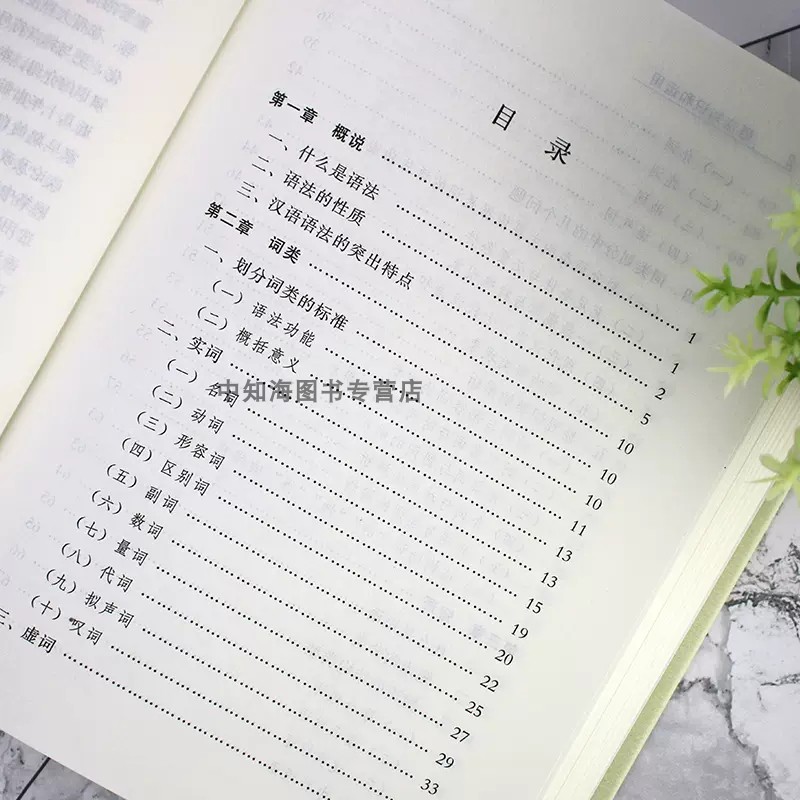 目 录
第一章 概说 …… 1
一、什么是语法 …… 1
二、语法的性质 …… 2
三、汉语语法的突出特点 …… 5
第二章 词类 …… 10
一、划分词类的标准 …… 10
（一）语法功能 …… 10
（二）概括意义 …… 11
二、实词 …… 13
（一）名词 …… 13
（二）动词 …… 15
（三）形容词 …… 19
（四）区别词 …… 20
（五）副词 …… 22
（六）数词 …… 25
（七）量词 …… 27
（八）代词 …… 29
（九）拟声词 …… 33
（十）叹词 ……
三、虚词 ……
中知海图书专营店